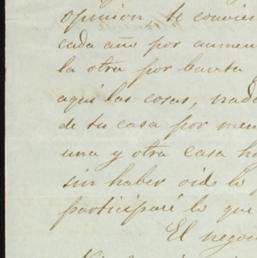 opinion te convien
cada año por aumen
la otra por
aqui las cosas, nad
de tu casa por men
una y otra casa ha
sin haber oido lo
participaré lo que
El nego